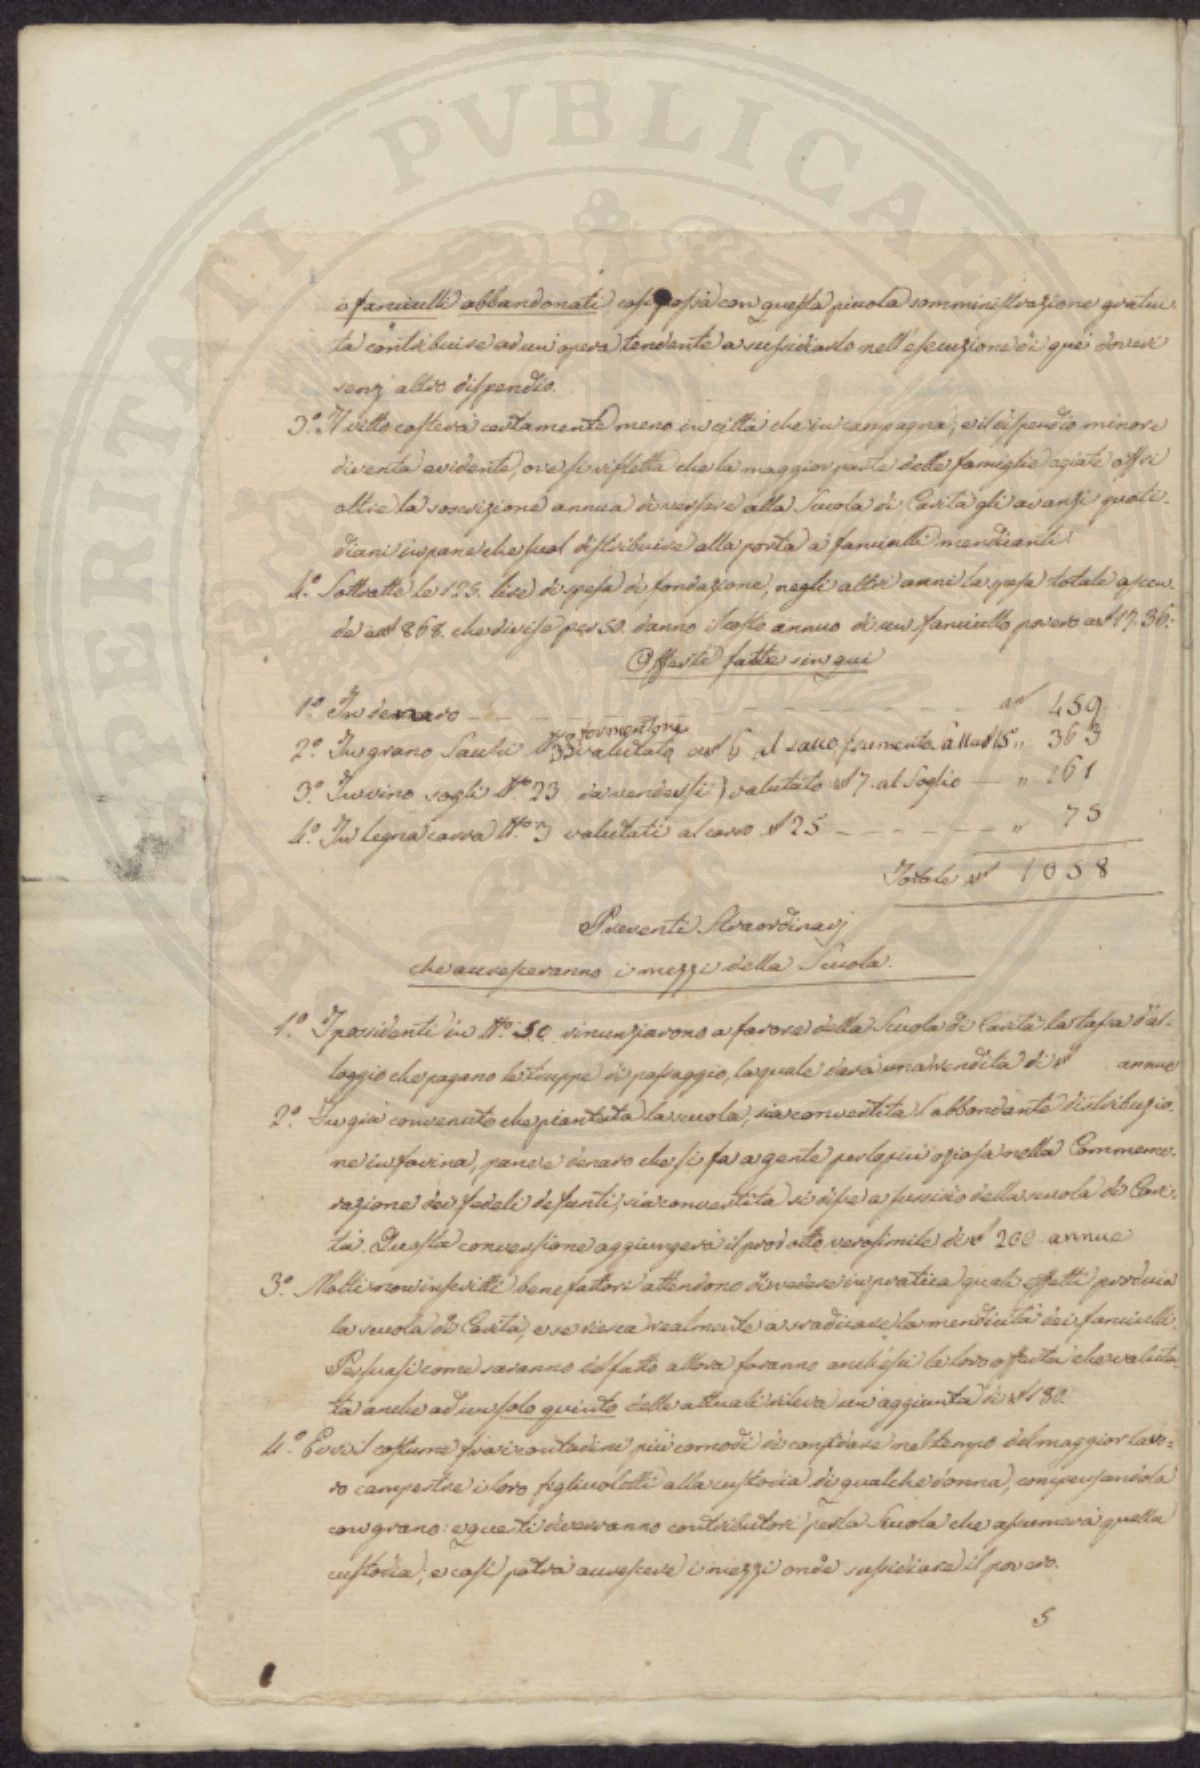 PROSPERITATI PVBLICAE
i fanciulli abbandonati, così possa con questa picola somministrazione gratui-
ta contribuire ad un opera tendente a sussidiarlo nell'esecuzione di que' doveri
senz' altro dispendio.
3.° Il vitto costerà certamente meno in città che in campagna; e il dispendio minore
diventa evidente, ove si rifletta che la maggior parte delle famiglie agiate offrì
oltre la soscrizione annua di versare alla Scuola di Carità gli avanzi quoti-
diani in pane che suol distribuire alla porta a' fanciulli mendicanti.
4.° Sottratte le 125. lire di spesa di fondazione, negli altri anni la spesa totale ascen-
de a 868. che divise per 50. danno il costo annuo di un fanciullo povero a 17.36.
Offerte fatte sin qui
1.° In denaro 459
formentone
2.° In grano valutato 6 al sacco, frumento 15 " 363
3.° In vino sogli N.° 23 da vendersi valutato 7. al Soglio — " 161
4.° In legna carra N.° 3 valutati al carro 25 " 75
Totale 1058
Proventi Straordinarj
che accresceranno i mezzi della Scuola.
1.° I possidenti in N.° 50 rinunziarono a favore della Scuola di Carità la tassa d'al-
loggio che pagano le truppe di passaggio, la quale darà una rendita di annue
2.° Fu già convenuto che piantata la scuola, sia convertita l'abbondante distribuzio-
ne in farina, pane e denaro che si fa a gente per lo più oziosa nella Commemo-
razione dei fedeli defunti, sia convertita si disse a sussidio della scuola di Cari-
tà. Questa conversione aggiungerà il prodotto verosimile di 200 annue
3.° Molti non inscritti benefattori attendono di vedere in pratica quali effetti produca
la scuola di Carità, e se riesca realmente a sradicare la mendicità dei fanciulli.
Persuasi come saranno del fatto allora faranno anch'essi la loro offerta che valuta-
ta anche ad un solo quinto delle attuali rileva un' aggiunta di 180.
4.° Evvi il costume fra i contadini più comodi di confidare nel tempo del maggior lavo-
ro campestre i loro figliuoletti alla custodia di qualche donna, compensandola
con grano: e questi diverranno contributori per la Scuola che assumerà quella
custodia; e così potrà accrescere i mezzi onde sussidiare il povero.
5